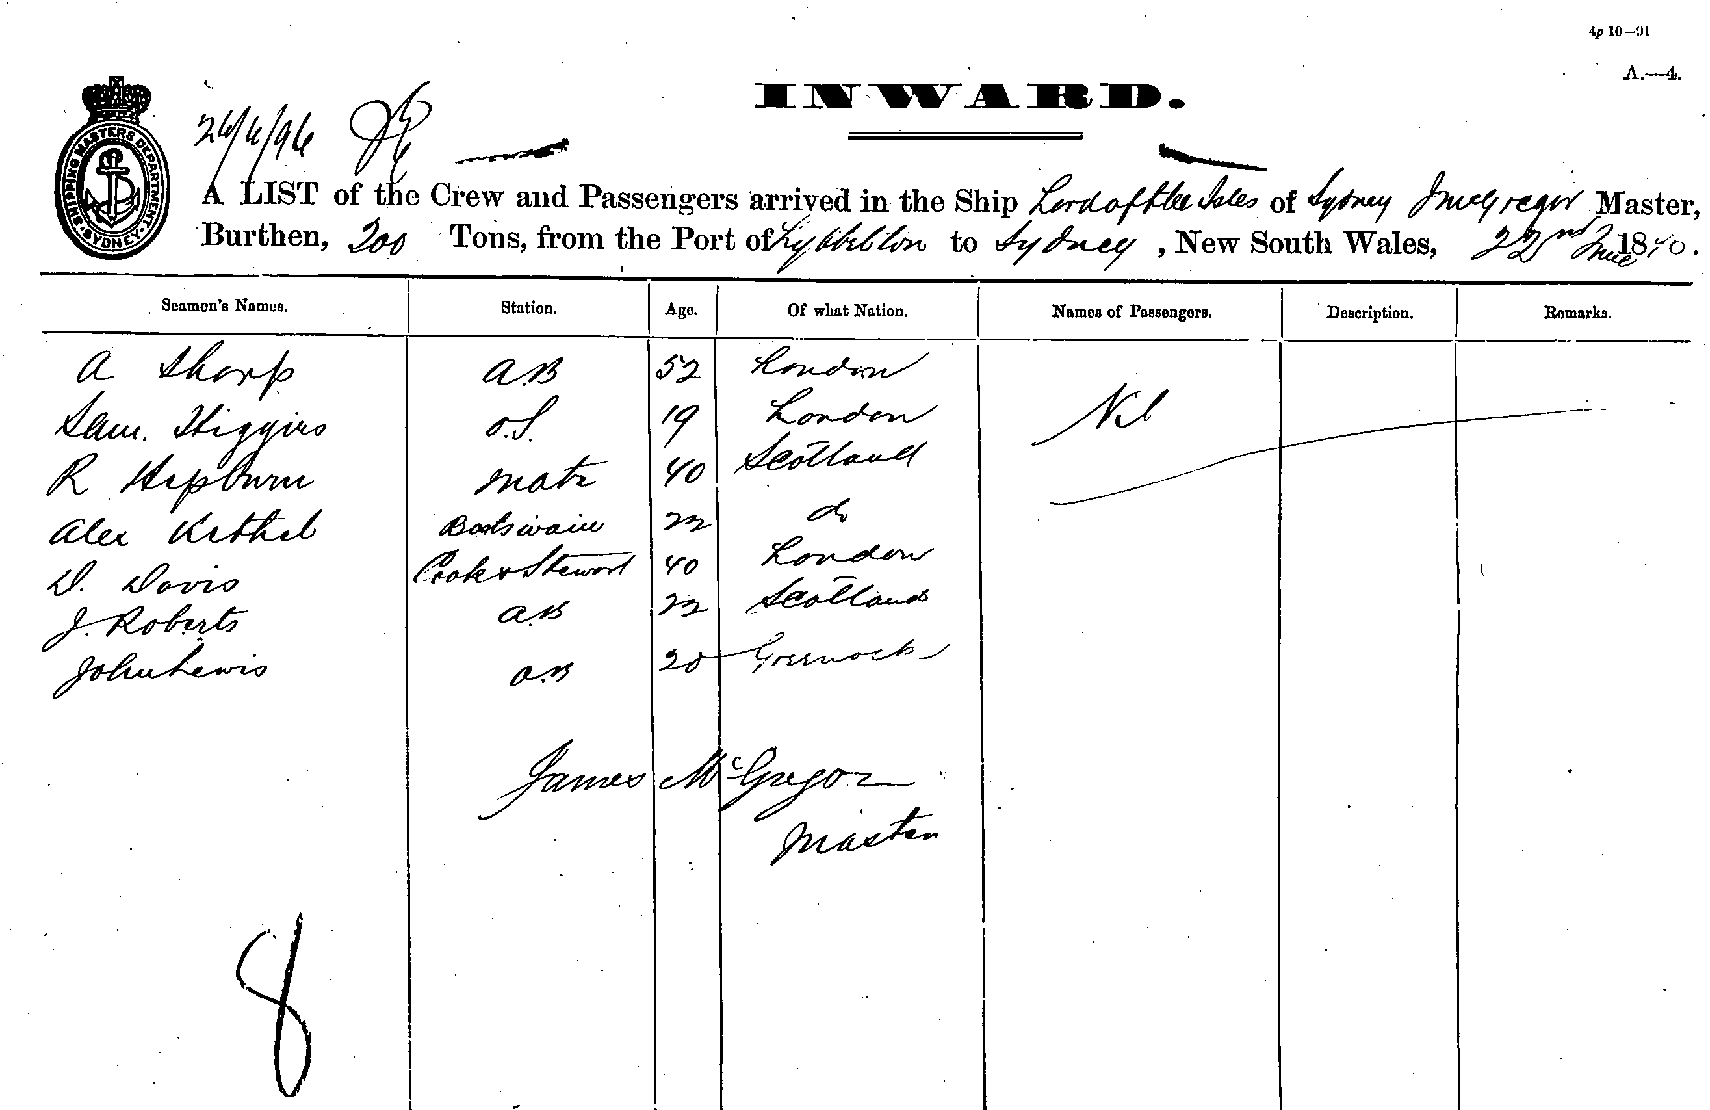 4p 10—91
A.—4.
INWARD.
SHIPPING MASTERS DEPARTMENT
SYDNEY
24/6/96
A LIST of the Crew and Passengers arrived in the Ship Lord of the Isles of Sydney J McGregor Master,
Burthen, 200 Tons, from the Port of Lyttelton to Sydney, New South Wales, 22nd June 18
Seamen's Names. Station. Age. Of what Nation. Names of Passengers. Description. Remarks.
A Sharp A.B 52 London Nil
Sam. Higgins O.S. 19 London
R Hepburn Mate 40 Scotland
Alex Boatswain 22 do
D. Davis Cook & Steward 40 London
J. Roberts A.B 22 Scotland
John Lewis A.B 20 Greenock
James McGregor
Master
8